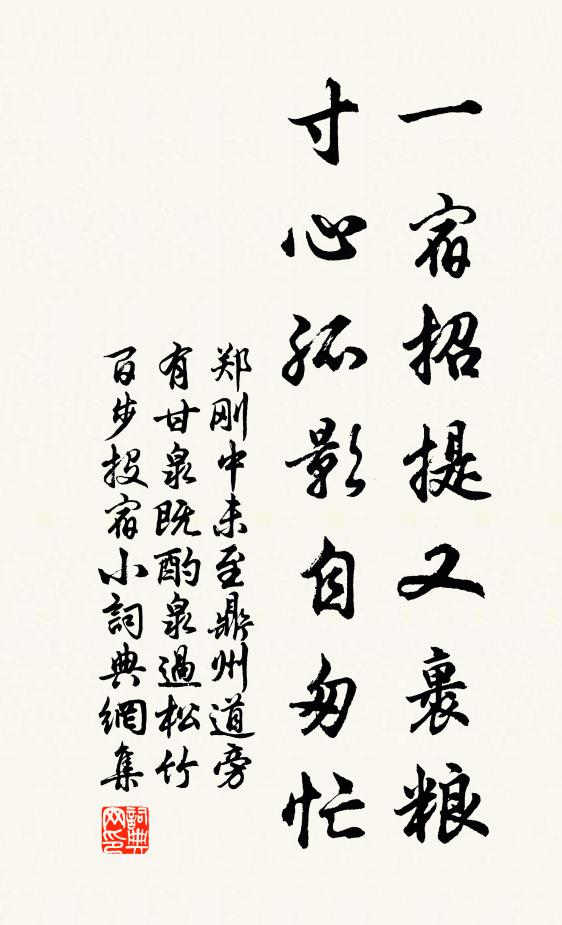 一宿招提又裹粮
寸心孤影自匆忙
郑刚中未至鼎州道旁
有甘泉既酌泉過松竹
百步投宿小詞典網集
詞典网印